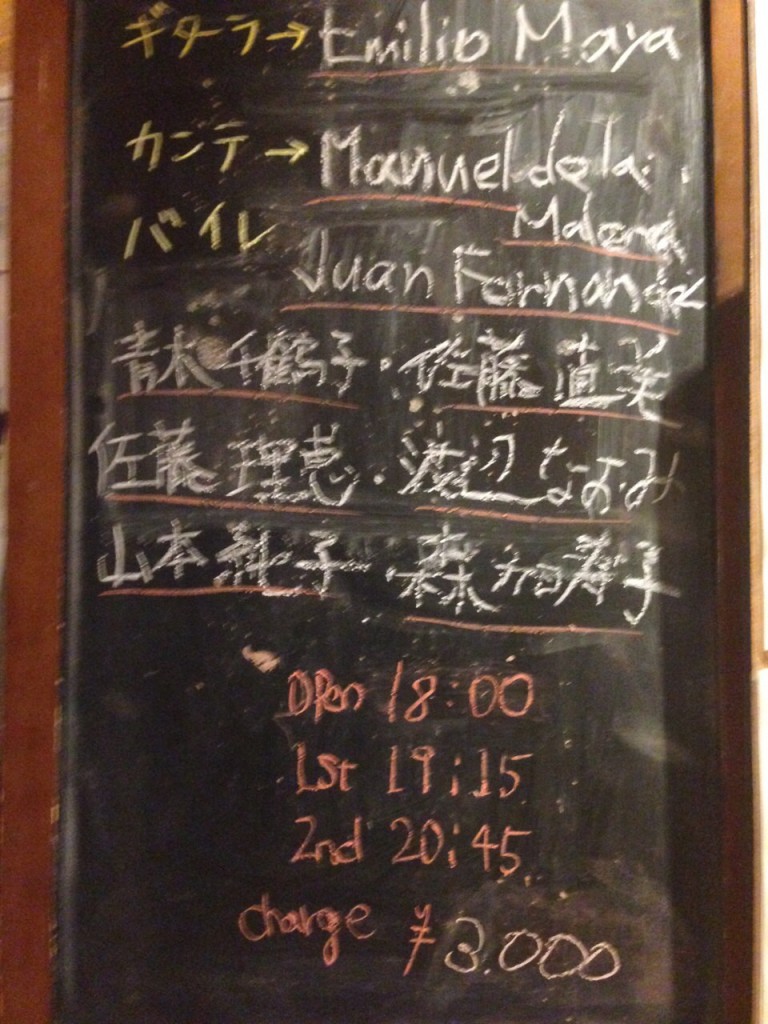 ギターラ→Emilio Maya
カンテ→Manuel de la
バイレ Malena
Juan Fernandez
青木千鶴子・佐藤直美
佐藤理恵・渡辺なおみ
山本純子 森加寿子
open 18:00
1st 19:15
2nd 20:45
charge ¥3.000